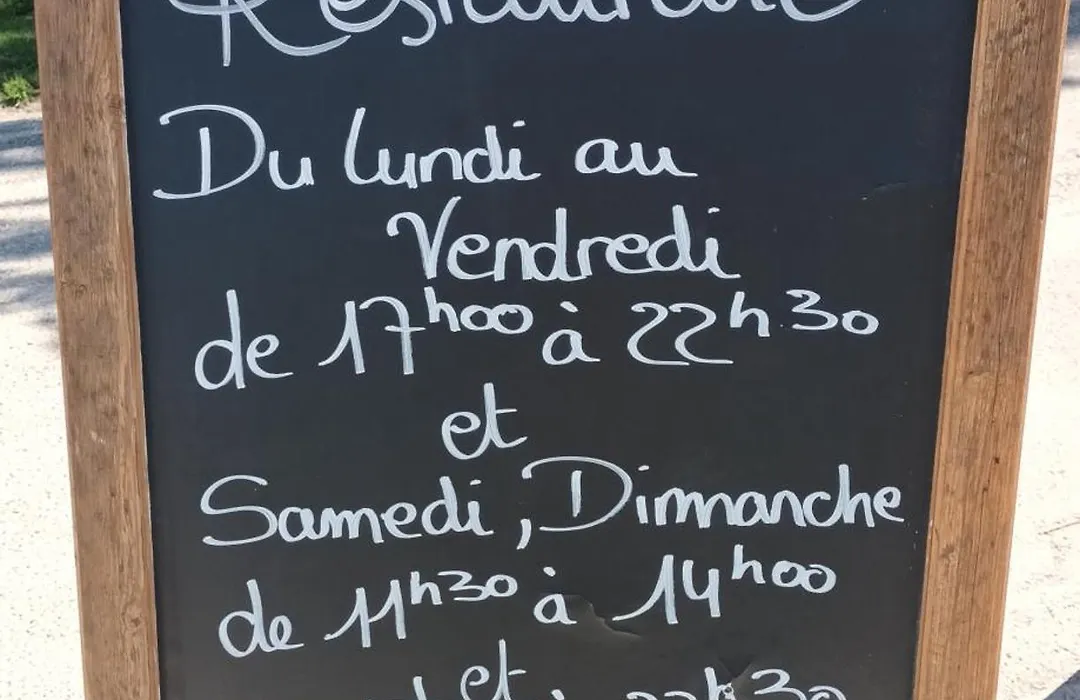 Restaurant
Du lundi au
Vendredi
de 17h00 à 22h30
et
Samedi, Dimanche
de 11h30 à 14h00
et
à 22h30